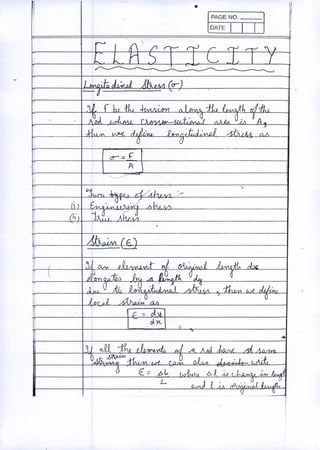 PAGE NO.
DATE
ELASTICITY
Longitudinal Stress (σ)
If F be the tension along the length of the
rod whose cross-sectional area is A,
then we define longitudinal stress as
σ = F
A
Two types of stress :-
(i) Engineering stress
(ii) True stress
Strain (ε)
If an element of original length dx
elongates by a length dy
due to longitudinal stress, then we define
local strain as
ε = dy
dx
If all the elements of a rod have same
strain then we can also write
ε = ΔL where Δl is change in length
L and l is original length